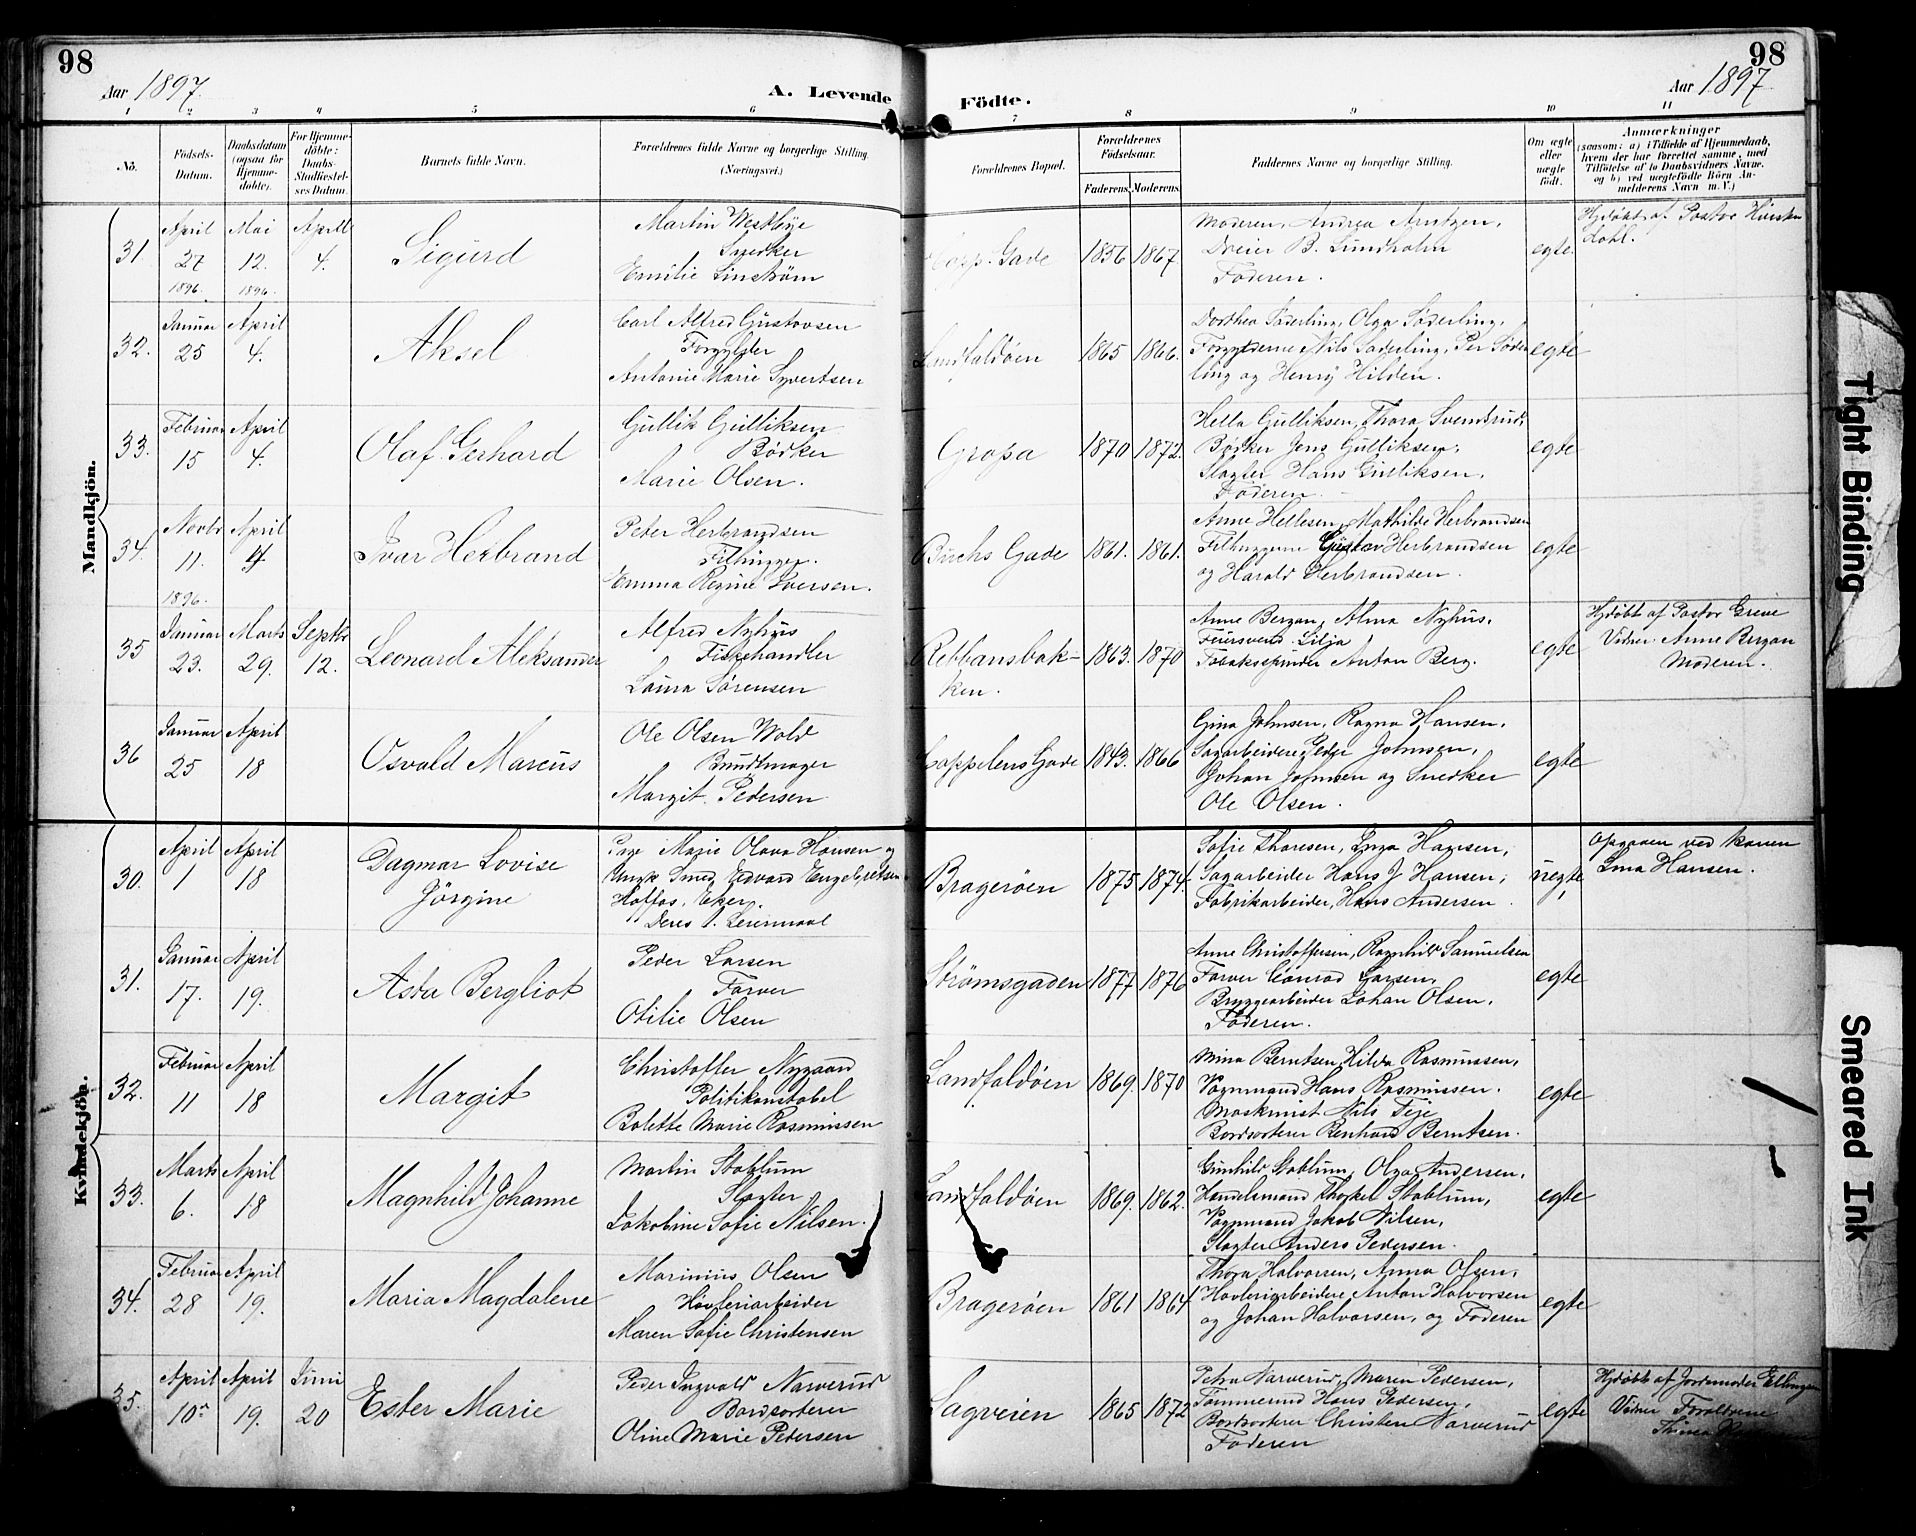 98
Aar 1897.
A. Levende
Födte.
98
Aar 1897.
1 2 3 4 5 6 7 8 9 10 11
No.
Födsels-
Datum.
Daabsdatum
(ogsaa for
Hjemme-
döbte).
For Hjemme-
döbte:
Daabs-
Stadfæstel-
ses Datum.
Barnets fulde Navn.
Forældrenes fulde Navne og borgerlige Stilling.
(Næringsvei.)
Forældrenes Bopæl.
Forældrenes
Födselsaar.
Faderens. Moderens.
Faddernes Navne og borgerlige Stilling.
Om ægte
eller
uægte
födt.
Anmærkninger
(saasom: a) i Tilfælde af Hjemmedaab,
hvem der har forrettet samme, med
Tilföielse af to Daabsvidners Navne.
og b) ved uægtefödte Börn An-
melderens Navn m. V.)
Mandkjön.
31.
April
27
1896.
Mai
12.
1896.
April
4.
Sigurd
Martin Westbye
Snedker
Emilie Linström
Copp. Gade
1856
1867.
Moderen, Andrea Arntzen,
Dreier B. Lundholm
Faderen.
egte.
Hjdöbt af Pastor
32.
Januar
25
April
4.
Aksel
Carl Alfred Gustavsen
Forgylder
Antonie Marie Syvertsen
Landfaldöen
1865
1866.
Dorthea Söderling, Olga Söderling,
Forgylderne Nils Söderling, Per Söder
ling og Henry Hilden.
egte
33.
Februar
15
April
4.
Olaf Gerhard
Gullik Gulliksen
Bödker
Marie Olsen.
Gropa
1870
1872.
Hella Gulliksen, Thora Svendsrud,
Bödker Jens Gulliksen,
Slagter Hans Gulliksen.
Faderen.
egte
34.
Novbr
11.
1896.
April
4
Ivar Herbrand
Peter Herbrandsen
Filhugger.
Emma Regine Iversen.
Buchs Gade
1861.
1861.
Anne Hellesen, Mathilde Herbrandsen
Filhuggerne Gustav Herbrandsen
og Harald Herbrandsen.
egte
35
Januar
23.
Marts
29.
Septbr
12.
Leonard Aleksander
Alfred Nyhus
Fiskehandler
Laura Sörensen
Rebbansbak-
ken.
1863.
1870
Anne Bergan, Alma Nyhus,
Feiersvend Lilja
Tobakspinder Anton Berg.
egte
Hjdöbt af Pastor Greve
Vidner. Anne Bergan
Moderen.
36
Januar
25
April
18
Osvald Marcus
Ole Olsen Wold
Bundtmager
Margit Pedersen
Coppelens Gade
1843.
1866
Gina Johnsen, Ragna Hansen,
Sagarbeidere Peder Johnsen,
Johan Johnsen og Snedker
Ole Olsen.
egte
Kvindekjön.
30.
April
1
April
18
Dagmar Lovise
Jörgine
Pige Marie Olava Hansen og
Ungk. Smed Edvard Engebretsen
Hoffos, Eker.
Deres 1. Leiermaal
Brageröen
1875
1874.
Sofie Thoresen, Inga Hansen,
Sagarbeider Hans J Hansen,
Fabrikarbeider, Hans Andersen
uegte
Opgaven ved konen
Lina Hansen.
31.
Januar
17.
April
19.
Asta Bergliot
Peder Larsen
Farver
Otilie Olsen
Strömsgaden
1877
1876
Anne Christoffersen, Ragnhild Samuelsen
Farver Conrad Larsen,
Bryggearbeider Johan Olsen,
Faderen.
egte
32.
Februar
11
April
18
Margit
Christoffer Nygaard
Politikonstabel
Bolette Marie Rasmussen
Landfaldöen
1869.
1870
Mina Berntsen, Hilda Rasmussen,
Vognmand Hans Rasmussen.
Maskinist Nils Teje
Bordsorterer Bernhard Berntsen.
egte
33.
Marts
6.
April
18
Magnhild Johanne
Martin Stablum
Slagter
Jakobine Sofie Nilsen.
Landfaldöen
1869.
1862.
Gunhild Stablum, Olga Andersen,
Handelsmand Thorkel Stablum,
Vognmand Jakob Nilsen,
Slagter Anders Pedersen.
egte
34.
Februar
28
April
19.
Maria Magdalene
Marinius Olsen
Hövleriarbeider
Maren Sofie Christensen
Brageröen
1861
1864
Thora Halvorsen, Anna Olsen,
Hövleriarbeidere Anton Halvorsen
og Johan Halvorsen, og Faderen
egte
35.
April
10
April
19.
Juni
20
Ester Marie
Peder Ingvald Narverud
Bordsorterer
Oline Marie Petersen
Sagveien
1865
1872
Petra Narverud, Maren Pedersen,
Tömmermd Hans Pedersen,
Bordsorterer Christen Narverud
Faderen
egte
Hjdöbt af Jordemoder Ellingsen
Vidner Forældrene
Tight Binding
Smeared Ink